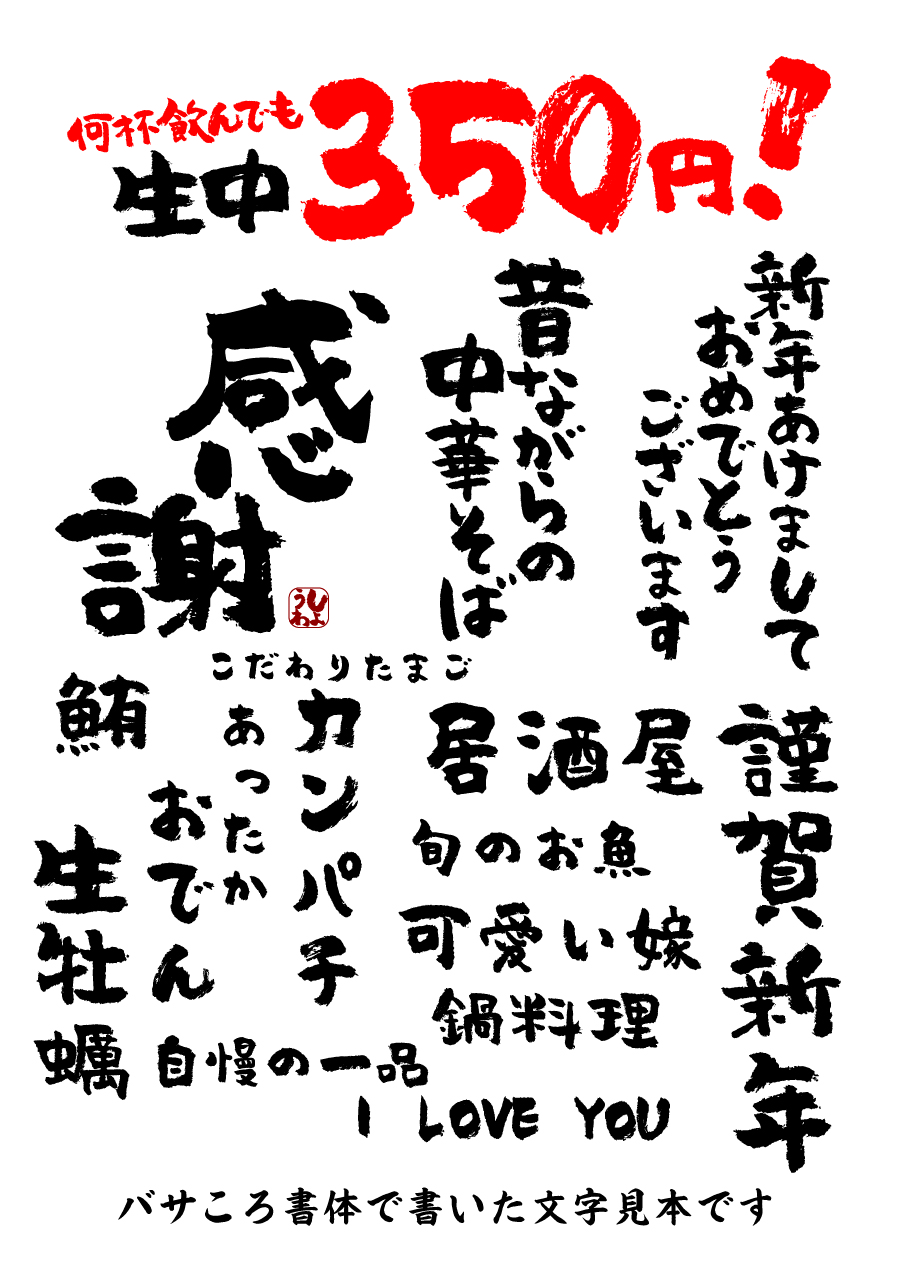 何杯飲んでも
生中350円!
新年あけまして
おめでとう
ございます
昔ながらの
中華そば
感謝
しょ
うわ
こだわりたまご
鮪
カンパチ
あったか
おでん
生牡蠣
居酒屋
旬のお魚
可愛い嫁
鍋料理
謹賀新年
自慢の一品
I LOVE YOU
バサころ書体で書いた文字見本です